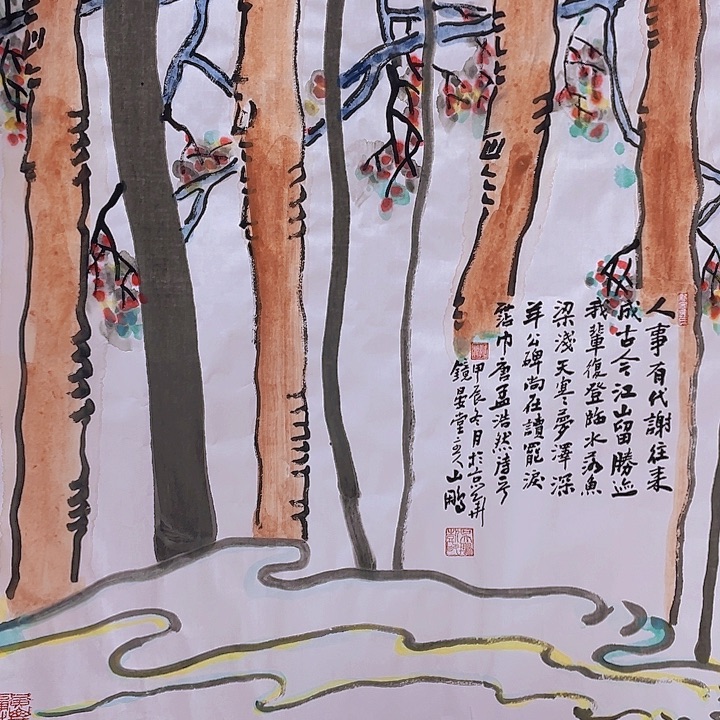 人事有代謝往来
成古今江山留勝迹
我輩復登臨水落魚
梁淺天寒夢澤深
羊公碑尚在讀罷淚
沾巾唐孟浩然詩
甲辰冬月於京
鏡晏堂主人山鵬